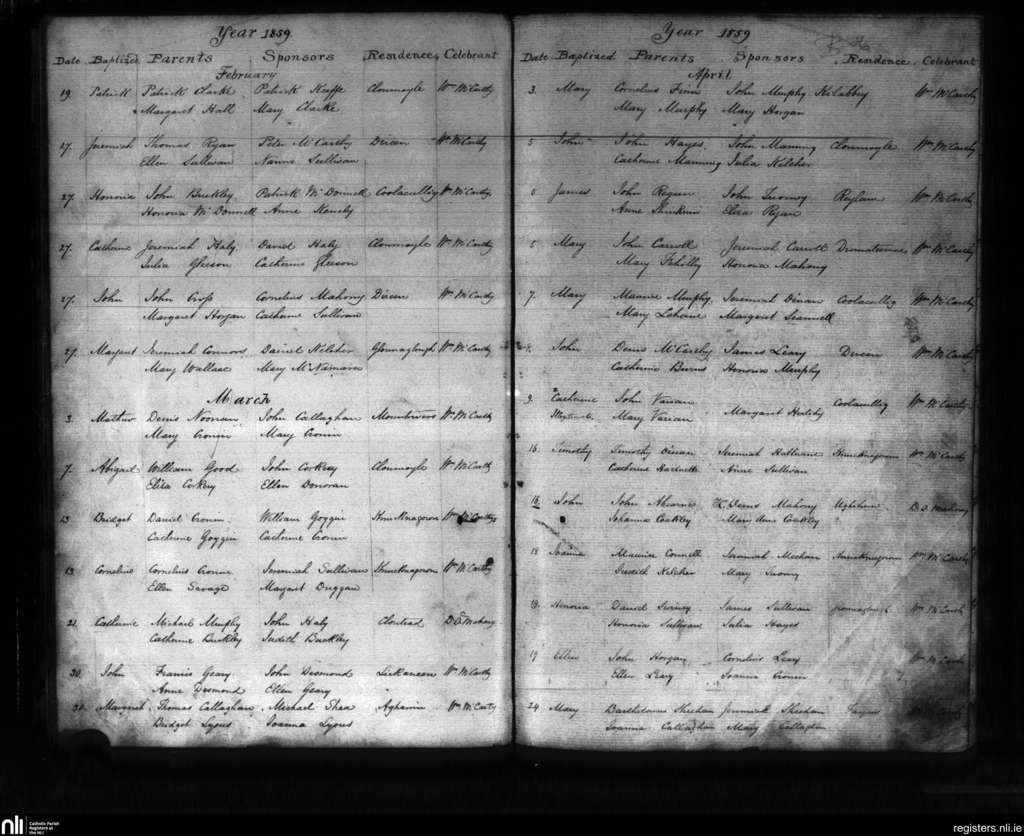 Year 1859.
Date Baptized Parents Sponsors Residence Celebrant
February
19. Patrick Patrick Clarke Patrick Keeffe Clonmoyle Wm McCarthy
Margaret Hall Mary Clarke
27. Jeremiah Thomas Ryan Peter McCarthy Direen Wm McCarthy
Ellen Sullivan Nanno Sullivan
27. Honoria John Buckley Patrick McDonnell Coolacullig Wm McCarthy
Honoria McDonnell Anne
27. Catherine Jeremiah Haly David Haly Clonmoyle Wm McCarthy
Julia Gleeson Catherine Gleeson
27. John John Cross Cornelius Mahony Direen Wm McCarthy
Margaret Horgan Catherine Sullivan
27. Margaret Jeremiah Connors Daniel Kelcher Wm McCarthy
Mary Wallace Mary McNamara
March
3. Denis Noonan John Callaghan Mountrivers Wm McCarthy
Mary Cronin Mary Cronin
7. Abigail William Good John Corkery Clonmoyle Wm McCarthy
Eliza Corkery Ellen Donovan
13 Bridget Daniel Cronin William Goggin Wm McCarthy
Catherine Goggin Catherine Cronin
13. Cornelius Cornelius Cronin Jeremiah Sullivan Wm McCarthy
Ellen Savage Margaret Duggan
21. Catherine Michael Murphy John Haly Clontead D. O'Mahony
Catherine Buckley Judith Buckley
30. John Francis Geary John Desmond Wm McCarthy
Anne Desmond Ellen Geary
30. Margaret Thomas Callaghan Michael Shea Aghavrin Wm McCarthy
Bridget Lyons Joanna Lyons
Year 1859
Date Baptized Parents Sponsors Residence Celebrant
April
3. Mary Cornelius John Murphy Kilabby Wm McCarthy
Mary Murphy Mary Horgan
5 John John Hayes John Manning Clonmoyle Wm McCarthy
Catherine Manning Julia Kelcher
5 James John Regan John Twomey Wm McCarthy
Anne Eliza Ryan
5 Mary John Carroll Jeremiah Carroll Wm McCarthy
Mary Honoria Mahony
7. Mary Maurice Murphy Jeremiah Dinan Coolacullig Wm McCarthy
Mary Lehane Margaret Scannell
John Denis McCarthy James Leary Direen Wm McCarthy
Catherine Burns Honoria Murphy
9. Catherine John Varian Coolacullig Wm McCarthy
Mary Varian Margaret
16. Timothy Timothy Dinan Jeremiah Wm McCarthy
Catherine Hartnett Anne Sullivan
16. John John Ahearne Denis Mahony D. O. Mahony
Johanna Coakley Mary Anne Coakley
18 Joanna Maurice Connell Jeremiah Meehan Wm McCarthy
Judith Kelcher Mary Twomey
19. Honoria Daniel James Sullivan Wm McCarthy
Honoria Sullivan Julia Hayes
19 Ellen John Horgan Cornelius Leary Wm McCarthy
Ellen Leary Joanna Cronin
24. Mary Bartholomew Sheehan Jeremiah Sheehan
Joanna Callaghan Mary Callaghan
nli Catholic Parish
Registers at
the NLI
registers.nli.ie